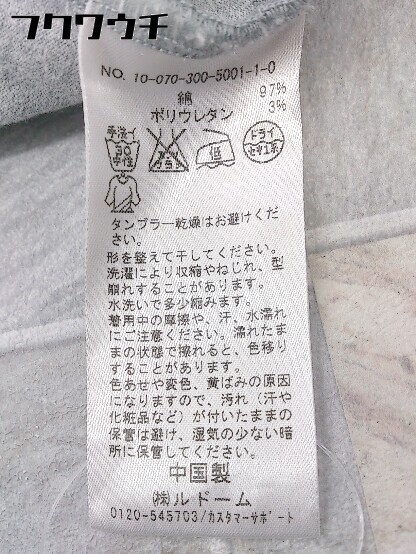 フクワウチ
NO. 10-070-300-5001-1-0
綿 97%
ポリウレタン 3%
手洗イ 30 中性
エンソサラシ
低
ドライ セキユ系
タンブラー乾燥はお避けくだ
さい。
形を整えて干してください。
洗濯により収縮やねじれ、型
崩れすることがあります。
水洗いで多少縮みます。
着用中の摩擦や、汗、水濡れ
にご注意ください。濡れたま
まの状態で擦れると、色移り
することがあります。
色あせや変色、黄ばみの原因
になりますので、汚れ（汗や
化粧品など）が付いたままの
保管は避け、湿気の少ない暗
所に保管してください。
中国製
㈱ルドーム
0120-545703/カスタマーサポート